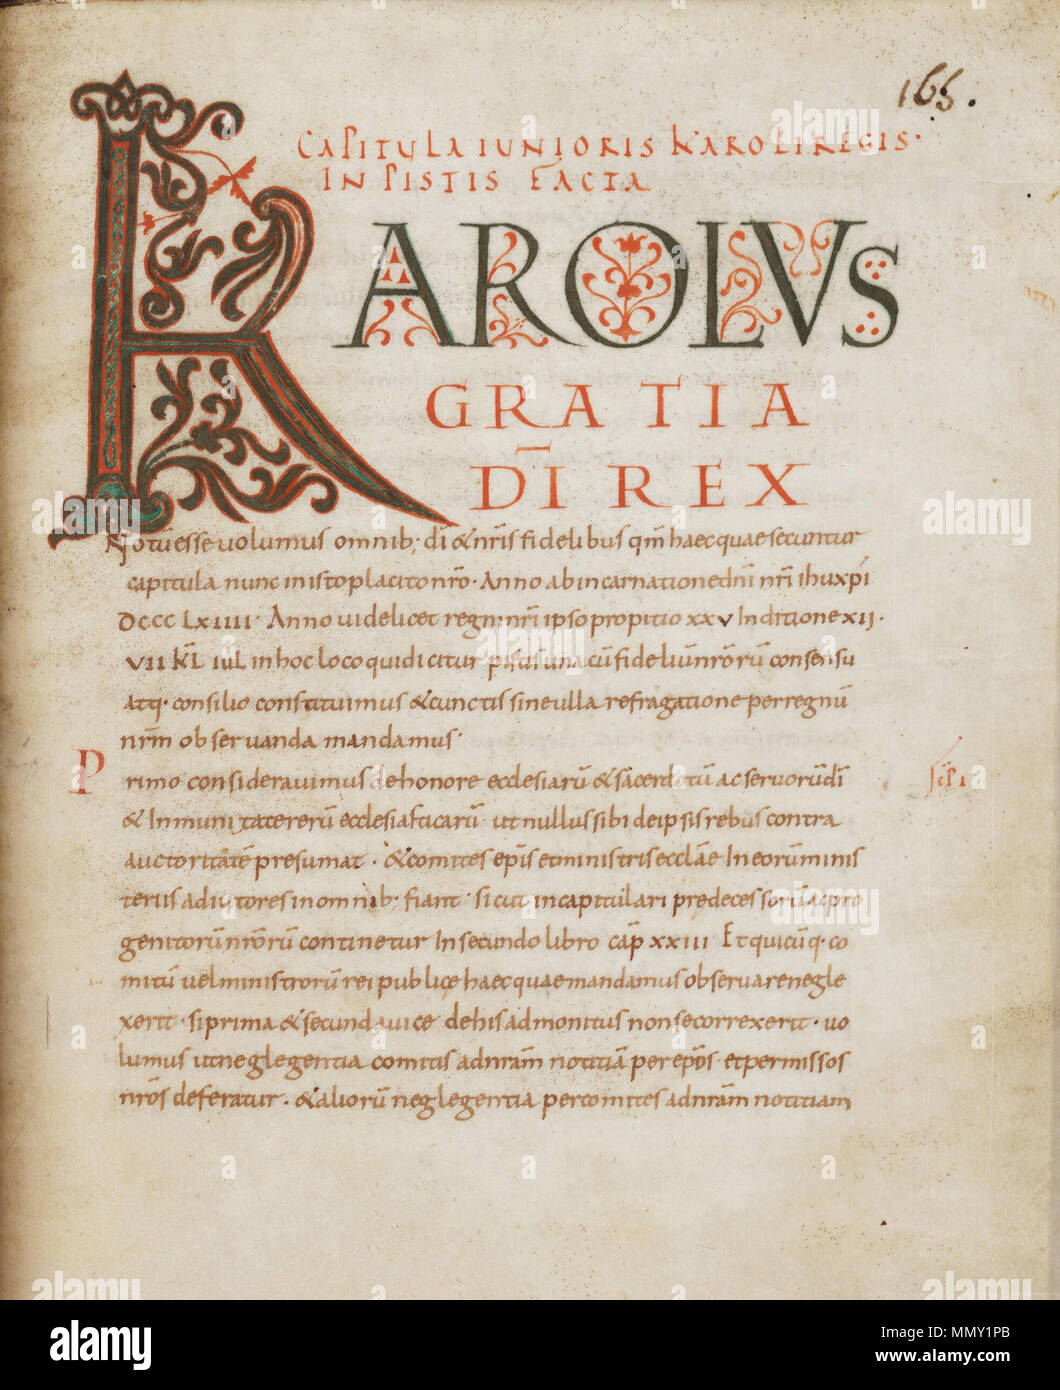 165.
CAPITULA IUNIORIS KAROLI REGIS·
IN PISTIS FACTA
KAROLVS
GRATIA
DI REX
Notu esse uolumus omnib; di & nris fidelibus qm haec quae secuntur
capitula nunc in isto placito nro· Anno ab incarnatione dni nri ihu xpi
DCCC LXIIII· Anno uidelicet regni nri ipso propitio xxv Inditione xii·
VII KL IUL in hoc loco qui dicitur pistis una cu fideliu nroru consensu
atq· consilio constituimus & cunctis sine ulla refragatione per regnu
nrm obseruanda mandamus·
Primo considerauimus de honore ecclesiaru & sacerdotu ac seruoru di
& Inmunitate reru ecclesiasticaru ut nullus sibi de ipsis rebus contra
auctoritate presumat· & comites epis et ministris ecclae In eoru minis
teriis adiutores in omnib· fiant· sicut in capitulari predecessoru ac pro
genitoru nroru continetur In secundo libro cap xxiii Et quicuq· co
mitu uel ministroru rei publice haec quae mandamus obseruare negle
xerit· si prima & secunda uice de his admonitus non se correxerit· uo
lumus ut neglegentia comitis ad nram notitia per epos et per missos
nros deferatur· & alioru neglegentia per comites ad nram notitiam
alamy
Image ID: MMY1PB
www.alamy.com